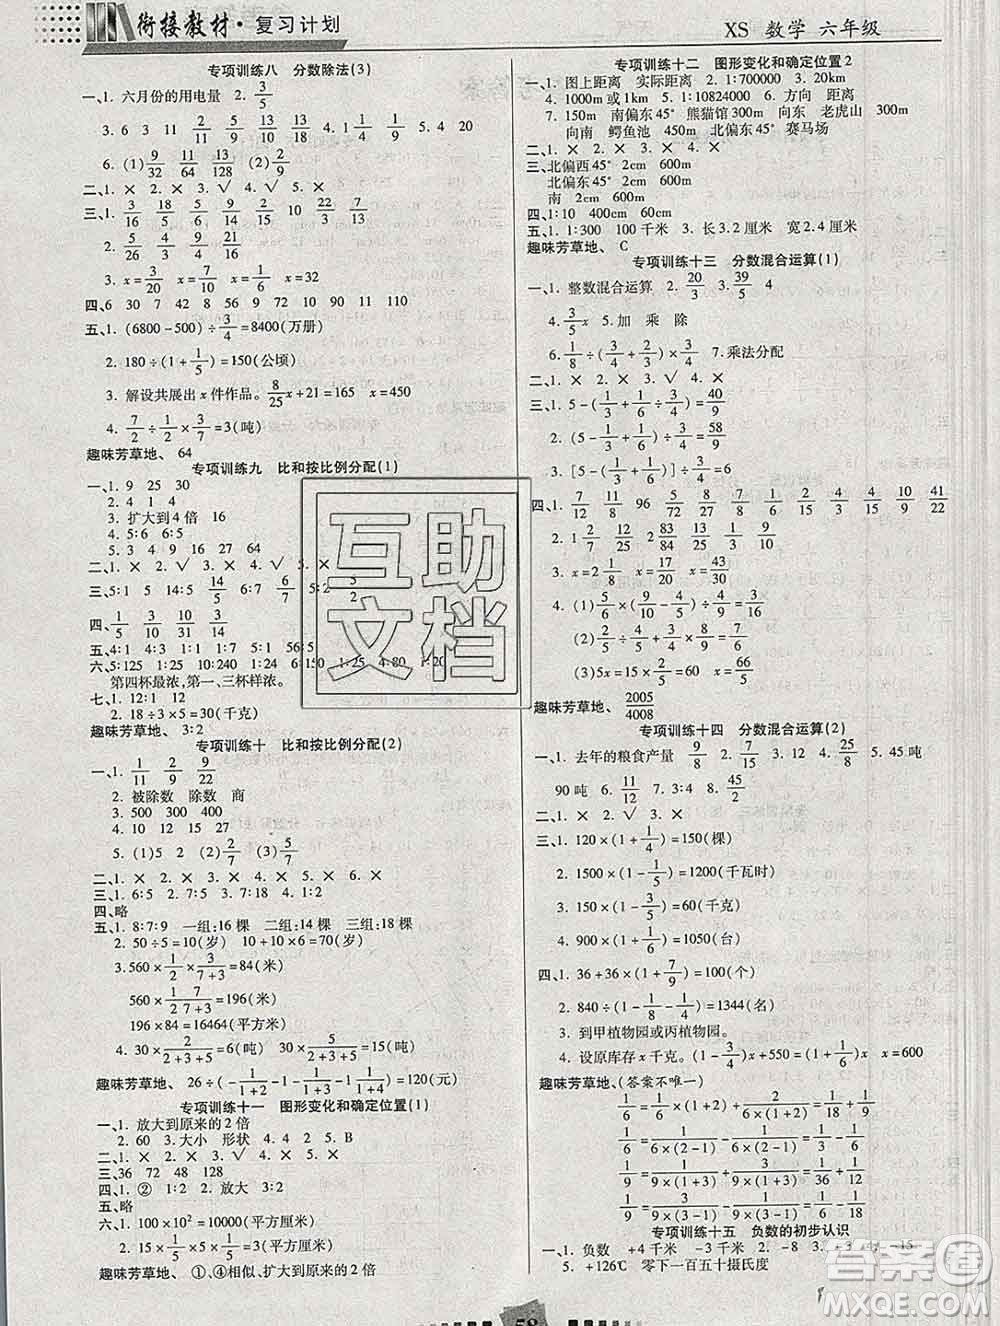 衔接教材·复习计划
XS 数学 六年级
专项训练八 分数除法(3)
一、1. 六月份的用电量 2. 3/5
3. 6 3 2/11 9/10 11/18 9/128 4. 1 1/4 5. 4 20
6. (1) 9/32 11/64 13/128 (2) 2/9
二、1. × 2. × 3. √ 4. √ 5. ×
三、1. 3/16 18/5 2/14 9/10 22/3 7/13
2. 5/26 3/4 9/4
3. x=3/20 x=13/16 x=32
四、6 30 7 42 8 56 9 72 10 90 11 110
五、1. (6800-500)÷3/4=8400(万册)
2. 180÷(1+1/5)=150(公顷)
3. 解设共展出x件作品。8/25x+21=165 x=450
4. 7/2÷1/2×3/7=3(吨)
趣味芳草地、 64
专项训练九 比和按比例分配(1)
一、1. 9 25 30
2. 4 1
3. 扩大到4倍 16
4. 6:5 6:5
5. 3 4 9 16
二、1. × 2. √ 3. √ 4. × 5. ×
三、5:1 5 1 14:5 6:7 1/2
四、1/5 3/10 131/30
五、4:1 5:1 15:1 10:1
六、5:125 1:25 10:240 1:24 6:150 1:25 4:80 1:20
第四杯最浓,第一、三杯样浓。
七、1. 12:1 12
2. 18÷3×5=30(千克)
趣味芳草地、 3:2
专项训练十 比和按比例分配(2)
一、1. 1/2 2/11 9/9 9/22
2. 被除数 除数 商
3. 500 300 400
4. 10 18 15 27
5. (1)5 (2)2/7 (3)2/7
二、1. × 2. × 3. × 4. × 5. ×
三、1. 6:5 2. 4:5 3. 7:18 4. 1:2
四、略
五、1. 8:7:9 一组:16棵 二组:14棵 三组:18棵
2. 50÷5=10(岁) 10+10×6=70(岁)
3. 560×1/2×3/(7+3)=84(米)
560×1/2×7/(7+3)=196(米)
196×84=16464(平方厘米)
4. 30×2/(2+3+5)=6(吨) 30×5/(2+3+5)=15(吨)
趣味芳草地、 26÷(-1/(1+1)-1/(1+2)-1/(1+4))=120(元)
专项训练十一 图形变化和确定位置(1)
一、1. 放大到原来的2倍
2. 60 3. 大小 形状 4. 4 2 5. B
二、1. × 2. × 3. √ 4. × 5. ×
三、36 72 48 128
四、1. ② 1:2 2. 放大 3:2
五、略
六、1. 100×10²=10000(平方厘米)
2. 15×1/2×2/(2+3)=3(平方厘米)
趣味芳草地、 ①、④相似、扩大到原来的2倍
专项训练十二 图形变化和确定位置2
一、1. 图上距离 实际距离 2. 1:700000 3. 20km
4. 1000m或1km 5. 1:10824000 6. 方向 距离
7. 150m 南偏东 150m 熊猫馆 300m 向东 老虎山 300m
向南 鳄鱼池 450m 北偏东 赛马场
二、1. × 2. × 3. × 4. ×
三、北偏西45° 2cm 600m
北偏东45° 2cm 600m
南 2cm 600m
四、1:10 400cm 60cm
五、1. 1:300 100千米 3. 长3.2厘米 宽2.4厘米
趣味芳草地、 C
专项训练十三 分数混合运算(1)
一、1. 整数混合运算 2. 20/3 3. 39/5 4
4. 3/5x 5. 加 乘 除
6. 1/8÷(2/4+2/3)×3/4 7. 乘法分配
二、1. × 2. × 3. √ 4. ×
三、1. 5-(1/3+1/6÷3/4)=40/9
2. 5-(1/3+1/6)÷3/4=58/9
3. [5-(1/3+1/6)]÷3/4=6
四、1. 7/12 11/8 96 5/72 27/8 7/6 2/5 4/9 10/9 41/22
2. 1 2/25 7/8 1/10
3. x=20/3 x=17/20 x=43/20
4. (1)5/6×(9/10-4/5)÷4/3=1/9
(2)3/5÷4/3×8/9=2/5
(3)5x=15×2/3 x=66/5
趣味芳草地、 2005/4008
专项训练十四 分数混合运算(2)
一、1. 去年的粮食产量 9/8 2. 7/15 3. 12 4. 25/8 5. 45吨
90吨 6. 11/12 7. 2/5 8. 4
二、1. × 2. × 3. √ 4. ×
三、1. 120×(1+1/4)=150(棵)
2. 1500×(1+1/5)=1200(千瓦时)
3. 150×(1+1/5)=60(千克)
4. 900×(1+1/18)=950(台)
四、1. 36+36×(1+7/9)=100(个)
2. 840÷(1-5/8)=1344(名)
3. 到甲植物园或丙植物园。
4. 设原库存x千克。(1-3/4)x+550=(1+1/6)x x=600
趣味芳草地、(答案不唯一)
1/6=1/(6×(1+2))+2/(6×(1+2))
1/6=1/(6×(2-1))-1/(6×(2-1))
1/9=1/(9×(1+3))+3/(9×(1+3))
1/9=1/(9×(3-1))-1/(9×(3-1))
专项训练十五 负数的初步认识
一、1. 负数 +4千米 -3千米 2. -8 3. -3
5. +126℃ 零下一百五十摄氏度
互助文档
58
答案圈
MXQE.COM